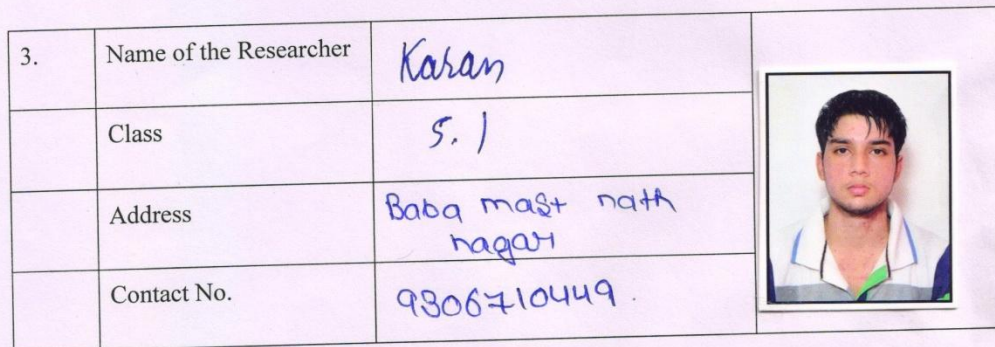 3. Name of the Researcher Karan
Class 5.1
Address Baba mast nath
nagar
Contact No. 9306710449.